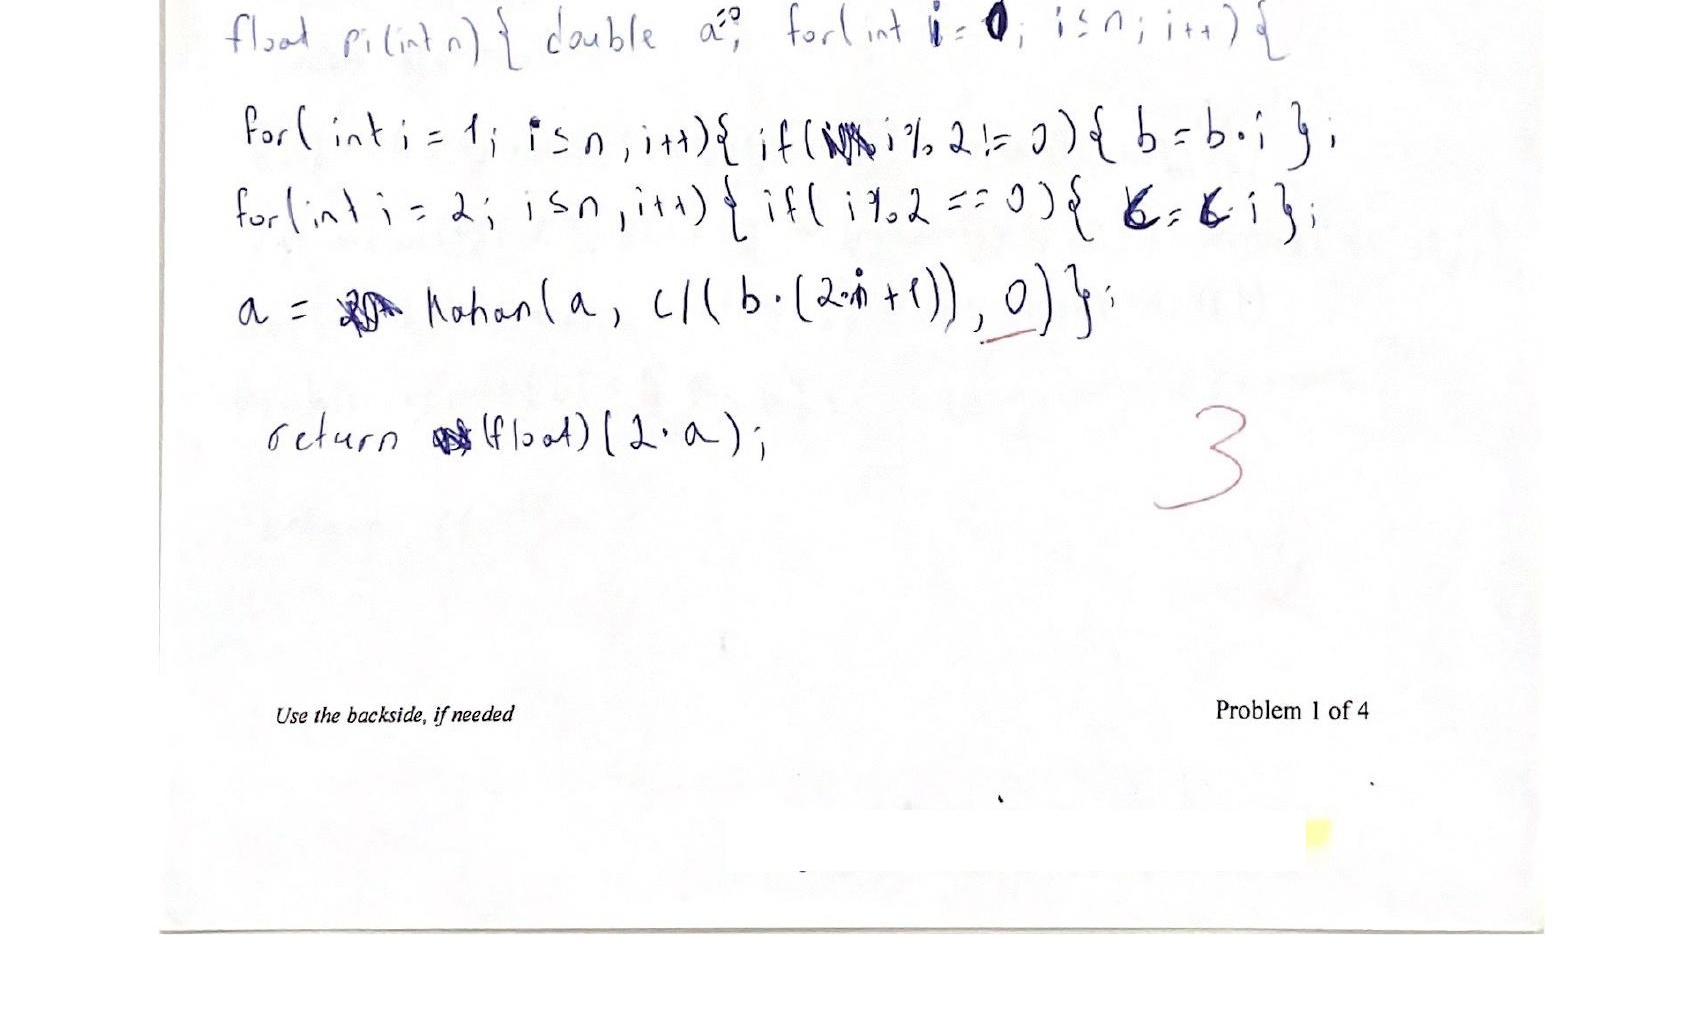 float pi(int n) { double a=0; for(int i=0; i≤n; i++) {
for( int i = 1; i≤n, i++){ if( i%2 != 0) { b = b·i } ;
for(int i = 2; i≤n, i++) { if( i%2 == 0) { c = c i } ;
a = Kahan(a, c/( b·(2·i+1)), 0) } ;
return (float) (2·a);
3
Use the backside, if needed
Problem 1 of 4